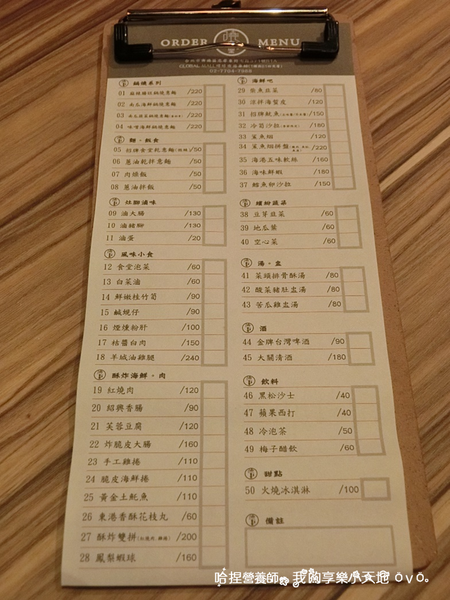 ORDER MENU
02-7704-7989
鍋燒系列
/220
02 南瓜海鮮鍋燒意麵 /220
/220
04 味噌海鮮鍋燒意麵 /220
麵．飯食
/50
06 蔥油乾拌意麵 /50
07 肉燥飯 /50
08 蔥油拌飯 /50
滷味
09 滷大腸 /130
10 滷豬腳 /130
11 滷蛋 /20
風味小食
12 食堂泡菜 /60
13 白菜滷 /60
14 鮮嫩桂竹筍 /90
15 鹹蜆仔 /90
16 煙燻粉肝 /100
17 桔醬白肉 /150
18 羊城油雞腿 /240
酥炸海鮮．肉
19 紅燒肉 /120
20 紹興香腸 /90
21 芙蓉豆腐 /120
22 炸脆皮大腸 /160
23 手工雞捲 /110
24 脆皮海鮮捲 /110
25 黃金土魠魚 /110
26 東港香酥花枝丸 /60
27 酥炸雙拼 /200
28 鳳梨蝦球 /160
海鮮吧
29 魚韭菜 /80
30 涼拌海蜇皮 /120
31 招牌魷魚 /130
32 冷筍沙拉 /180
33 鯊魚烟 /120
34 鯊魚烟拼盤
35 五味軟絲 /160
36 海味鮮蝦 /180
37 鱈魚卵沙拉 /150
繽紛蔬菜
38 豆芽韭菜 /60
39 地瓜葉 /60
40 空心菜 /60
湯．盅
41 菜頭排骨酥湯 /80
42 酸菜豬肚盅湯 /80
43 苦瓜雞盅湯 /80
酒
44 金牌台灣啤酒 /90
45 大關清酒 /180
飲料
46 黑松沙士 /40
47 蘋果西打 /40
48 冷泡茶 /50
49 梅子醋飲 /60
甜點
50 火燒冰淇淋 /100
備註
哈捏營養師。我齁享樂小天地 ovo。